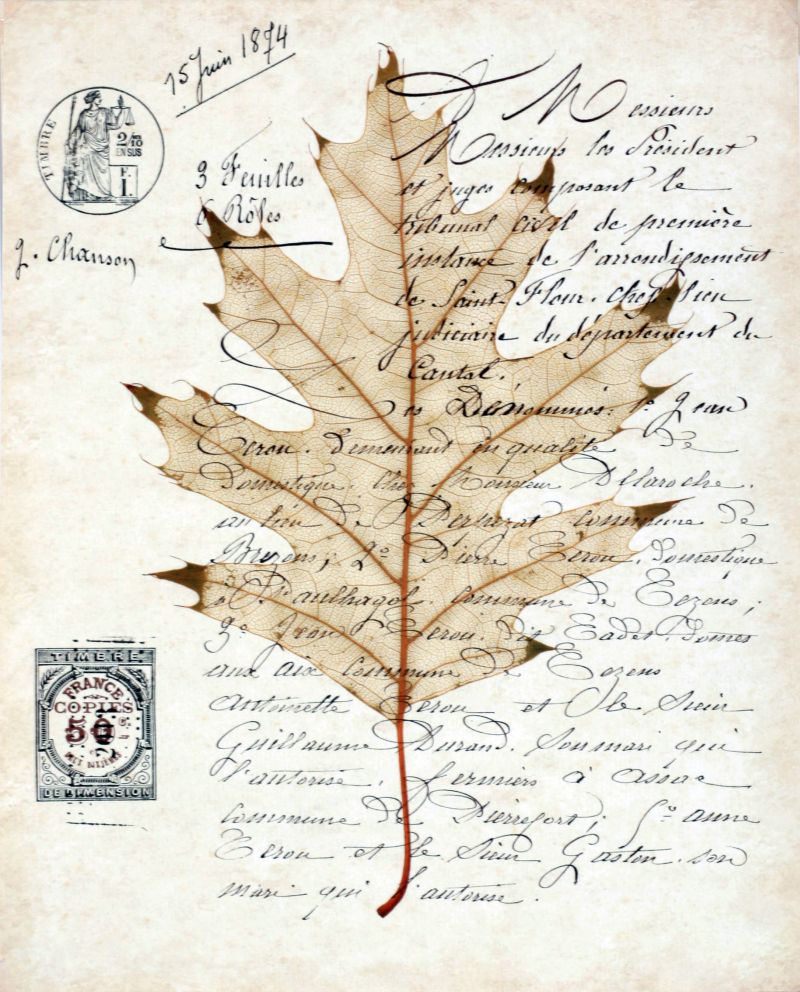 15 Juin 1874
TIMBRE
2/10
EN SUS
F.
1.
3 Feuilles
6 Rôles
J. Chanson
A Messieurs
Messieurs les Président
et juges composant le
tribunal civil de première
instance de l'arrondissement
de Saint-Flour. chef lieu
judiciaire du département du
Cantal.
Les Dénommés: 1º Jean
Terou. demeurant en qualité de
Domestique. chez Monsieur Dellaroche.
au lieu de commune de
Brezons; 2º Pierre Terou. domestique
à Paulhagol. commune de Cezens;
3º Jean Terou. dit Cadet. Domes
aux aix commune de Cezens
Antoinette Terou et le Sieur
Guillaume Durand. Son mari qui
l'autorise. fermiers à
commune de Pierrefort; 5º anne
Terou et le Sieur Gaston. son
mari qui l'autorise.
TIMBRE
FRANCE
COPIES
50
DE DIMENSION